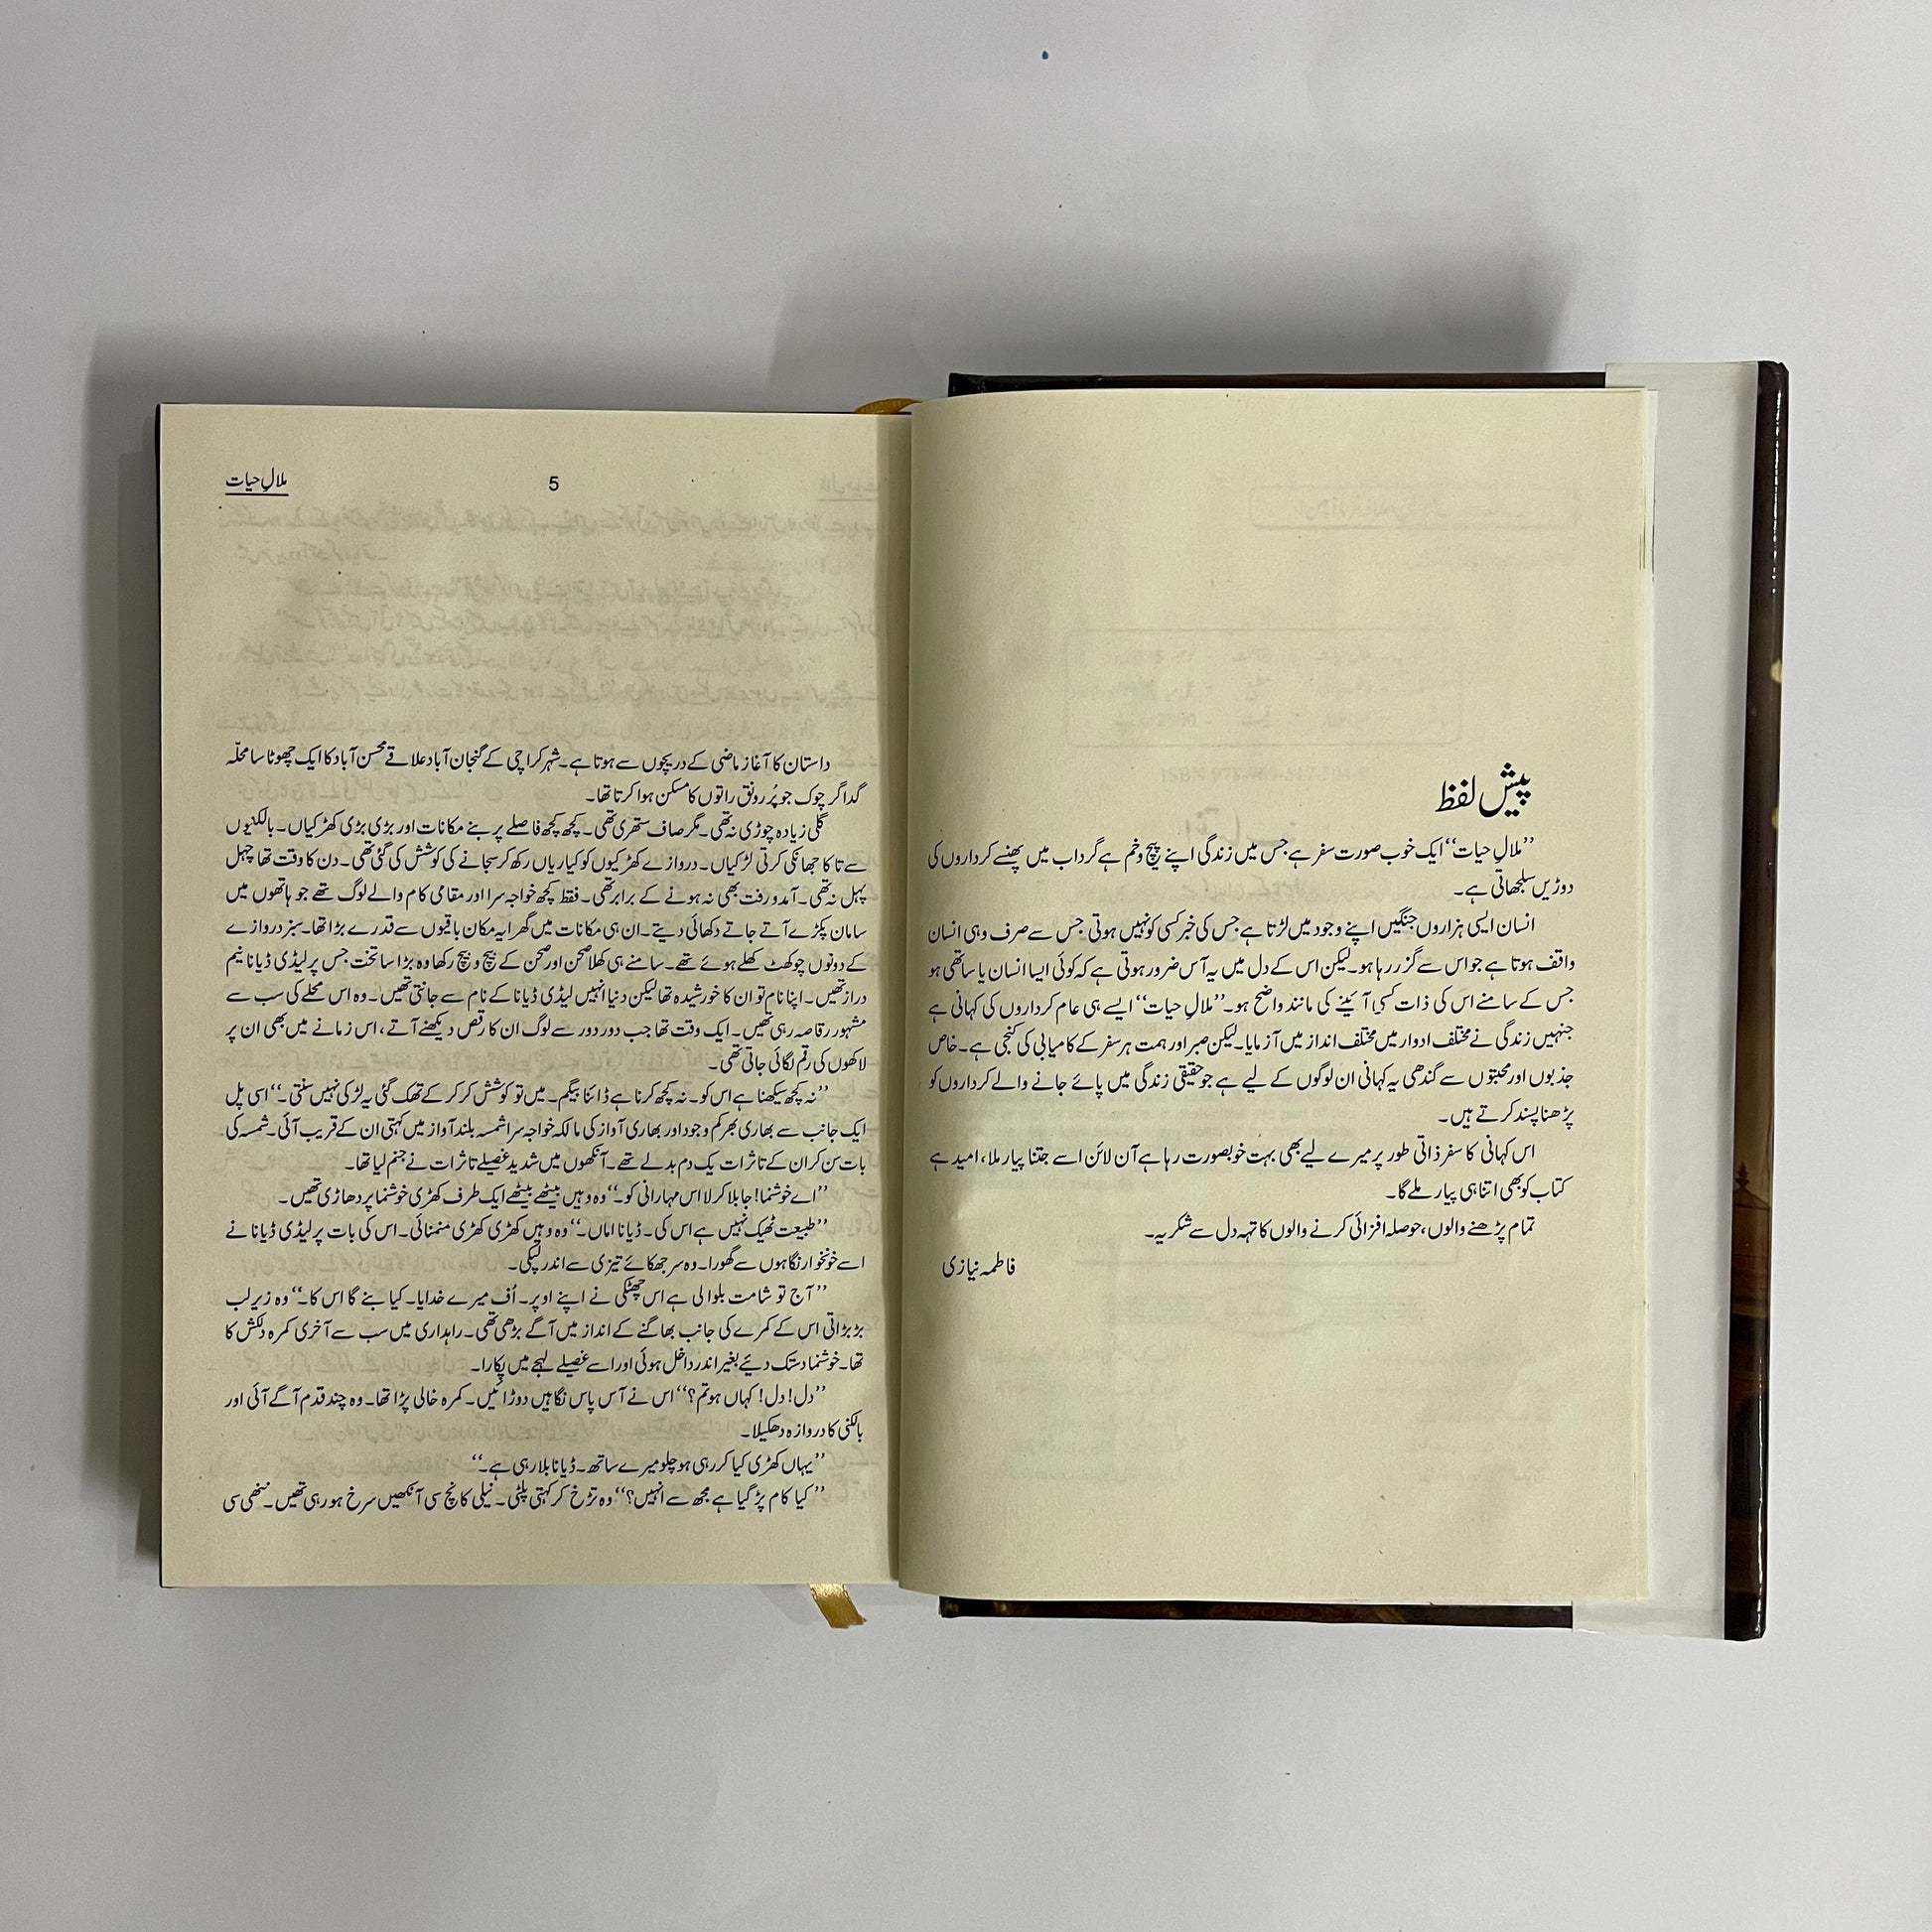 پیش لفظ
’’ملالِ حیات‘‘ ایک خوب صورت سفر ہے جس میں زندگی اپنے پیچ و خم ہے گرداب میں پھنسے کرداروں کی
دوڑیں سلجھاتی ہے۔
انسان ایسی ہزاروں جنگیں اپنے وجود میں لڑتا ہے جس کی خبر کسی کو نہیں ہوتی جس سے صرف وہی انسان
واقف ہوتا ہے جو اس سے گزر رہا ہو۔ لیکن اس کے دل میں یہ آس ضرور ہوتی ہے کہ کوئی ایسا انسان یا ساتھی ہو
جس کے سامنے اس کی ذات کسی آئینے کی مانند واضح ہو۔ ’’ملالِ حیات‘‘ ایسے ہی عام کرداروں کی کہانی ہے
جنہیں زندگی نے مختلف ادوار میں مختلف انداز میں آزمایا۔ لیکن صبر اور ہمت ہر سفر کے کامیابی کی کنجی ہے۔ خاص
جذبوں اور محبتوں سے گندھی یہ کہانی ان لوگوں کے لیے ہے جو حقیقی زندگی میں پائے جانے والے کرداروں کو
پڑھنا پسند کرتے ہیں۔
اس کہانی کا سفر ذاتی طور پر میرے لیے بھی بہت خوبصورت رہا ہے آن لائن اسے جتنا پیار ملا، امید ہے
کتاب کو بھی اتنا ہی پیار ملے گا۔
تمام پڑھنے والوں، حوصلہ افزائی کرنے والوں کا تہہ دل سے شکریہ۔
فاطمہ نیازی
5
ملالِ حیات
داستان کا آغاز ماضی کے دریچوں سے ہوتا ہے۔ شہر کراچی کے گنجان آباد علاقے محسن آباد کا ایک چھوٹا سا محلّہ
گداگر چوک جو پُر رونق راتوں کا مسکن ہوا کرتا تھا۔
گلی زیادہ چوڑی نہ تھی۔ مگر صاف ستھری تھی۔ کچھ کچھ فاصلے پر بنے مکانات اور بڑی بڑی کھڑکیاں۔ بالکنیوں
سے تاکا جھانکی کرتی لڑکیاں۔ دروازے کھڑکیوں کو کیاریاں رکھ کر سجانے کی کوشش کی گئی تھی۔ دن کا وقت تھا چہل
پہل نہ تھی۔ آمد و رفت بھی نہ ہونے کے برابر تھی۔ فقط کچھ خواجہ سرا اور مقامی کام والے لوگ تھے جو ہاتھوں میں
سامان پکڑے آتے جاتے دکھائی دیتے۔ ان ہی مکانات میں گھرا یہ مکان باقیوں سے قدرے بڑا تھا۔ سبز دروازے
کے دونوں چوکھٹ کھلے ہوئے تھے۔ سامنے ہی کھلا صحن اور صحن کے بیچ و بیچ رکھا وہ بڑا سا تخت جس پر لیڈی ڈیانا نیم
دراز تھیں۔ اپنا نام تو ان کا خورشیدہ تھا لیکن دنیا انہیں لیڈی ڈیانا کے نام سے جانتی تھیں۔ وہ اس محلے کی سب سے
مشہور رقاصہ رہی تھیں۔ ایک وقت تھا جب دور دور سے لوگ ان کا رقص دیکھنے آتے، اس زمانے میں بھی ان پر
لاکھوں کی رقم لگائی جاتی تھی۔
’’نہ کچھ سیکھنا ہے اس کو۔ نہ کچھ کرنا ہے ڈائنا بیگم۔ میں تو کوشش کر کر کے تھک گئی یہ لڑکی نہیں سنتی۔‘‘ اسی پل
ایک جانب سے بھاری بھرکم وجود اور بھاری آواز کی مالکہ خواجہ سرا شمسہ بلند آواز میں کہتی ان کے قریب آئی۔ شمسہ کی
بات سن کر ان کے تاثرات یک دم بدلے تھے۔ آنکھوں میں شدید غصیلے تاثرات نے جنم لیا تھا۔
’’اے خوشنما! جا بلا کر لا اس مہارانی کو۔‘‘ وہ وہیں بیٹھے بیٹھے ایک طرف کھڑی خوشنما پر دھاڑی تھیں۔
’’طبیعت ٹھیک نہیں ہے اس کی۔ ڈیانا اماں۔‘‘ وہ وہیں کھڑی کھڑی منمنائی۔ اس کی بات پر لیڈی ڈیانا نے
اسے خونخوار نگاہوں سے گھورا۔ وہ سر جھکائے تیزی سے اندر لپکی۔
’’آج تو شامت بلوا لی ہے اس چھٹکی نے اپنے اوپر۔ اُف میرے خدایا۔ کیا بنے گا اس کا۔‘‘ وہ زیر لب
بڑبڑاتی اس کے کمرے کی جانب بھاگنے کے انداز میں آگے بڑھی تھی۔ راہداری میں سب سے آخری کمرہ دلکش کا
تھا۔ خوشنما دستک دئیے بغیر اندر داخل ہوئی اور اسے غصیلے لہجے میں پکارا۔
’’دل! دل! کہاں ہو تم؟‘‘ اس نے آس پاس نگاہیں دوڑائیں۔ کمرہ خالی پڑا تھا۔ وہ چند قدم آگے آئی اور
بالکنی کا دروازہ دھکیلا۔
’’یہاں کھڑی کیا کر رہی ہو چلو میرے ساتھ۔ ڈیانا بلا رہی ہے۔‘‘
’’کیا کام پڑ گیا ہے مجھ سے انہیں؟‘‘ وہ تڑخ کر کہتی پلٹی۔ نیلی کانچ سی آنکھیں سرخ ہو رہی تھیں۔ ننھی سی